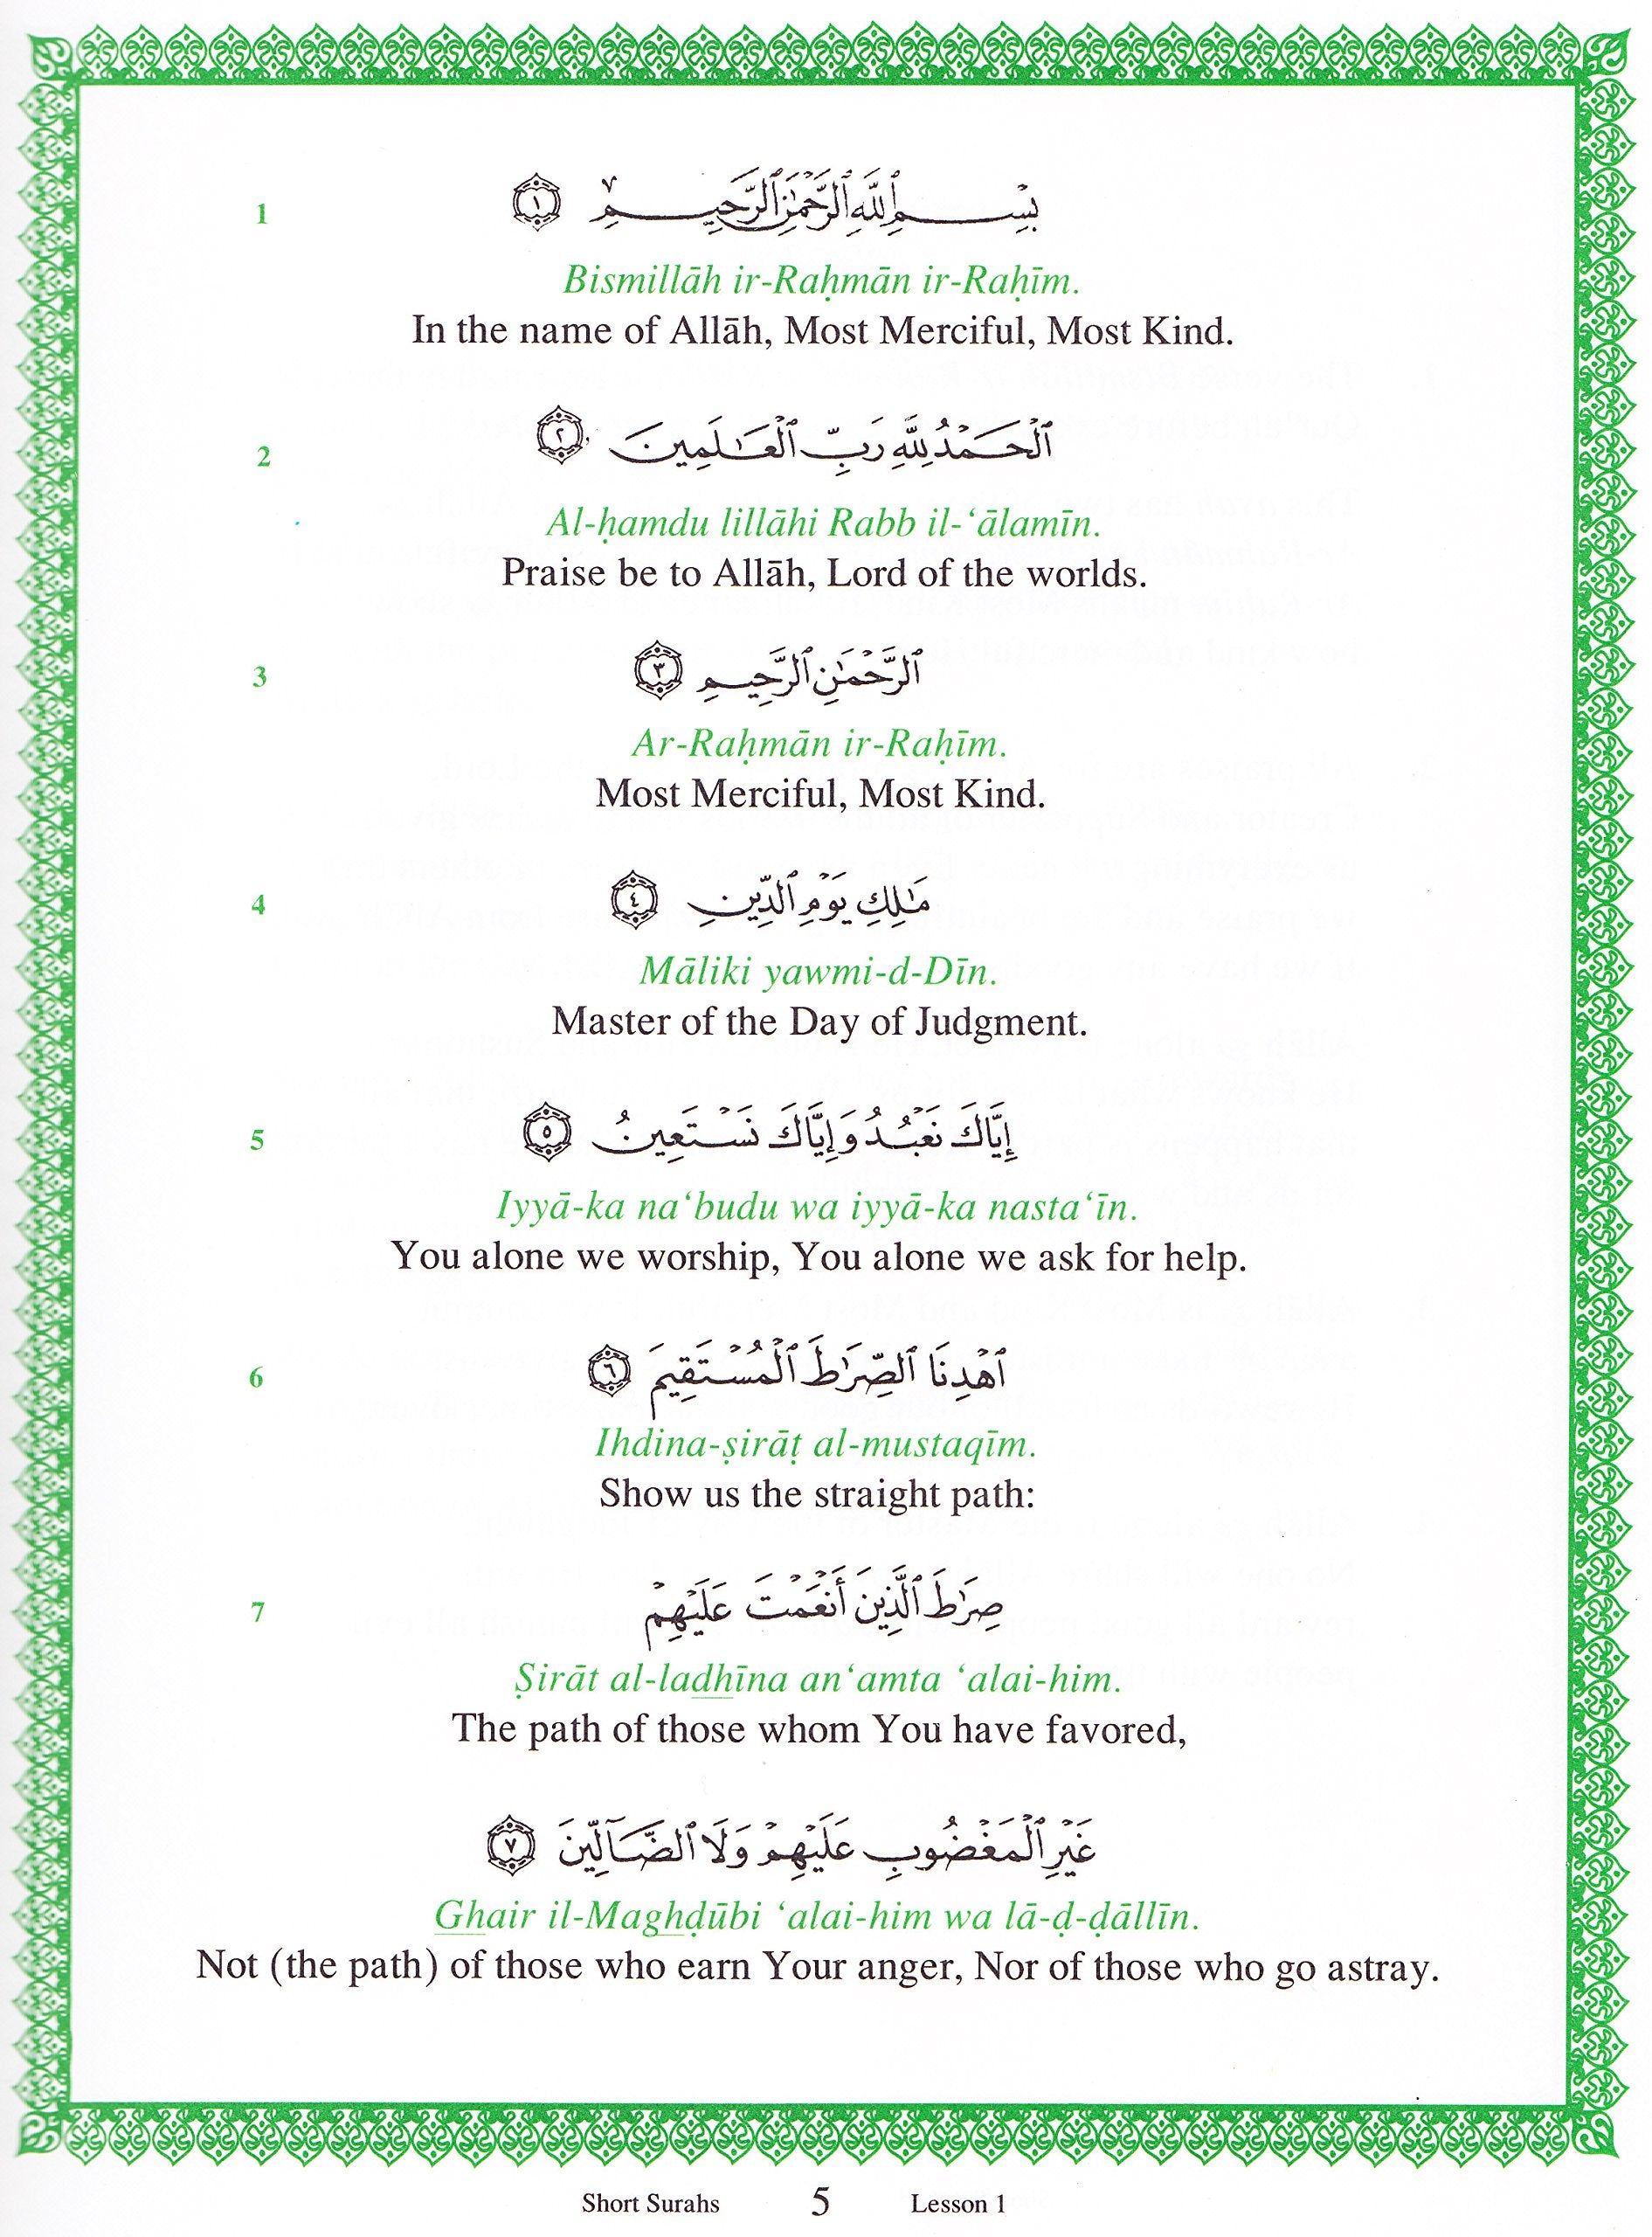 1
بِسْمِ ٱللَّهِ ٱلرَّحْمَٰنِ ٱلرَّحِيمِ ١
Bismillāh ir-Raḥmān ir-Raḥīm.
In the name of Allāh, Most Merciful, Most Kind.
2
ٱلْحَمْدُ لِلَّهِ رَبِّ ٱلْعَٰلَمِينَ ٢
Al-ḥamdu lillāhi Rabb il-‘ālamīn.
Praise be to Allāh, Lord of the worlds.
3
ٱلرَّحْمَٰنِ ٱلرَّحِيمِ ٣
Ar-Raḥmān ir-Raḥīm.
Most Merciful, Most Kind.
4
مَٰلِكِ يَوْمِ ٱلدِّينِ ٤
Māliki yawmi-d-Dīn.
Master of the Day of Judgment.
5
إِيَّاكَ نَعْبُدُ وَإِيَّاكَ نَسْتَعِينُ ٥
Iyyā-ka na‘budu wa iyyā-ka nasta‘īn.
You alone we worship, You alone we ask for help.
6
ٱهْدِنَا ٱلصِّرَٰطَ ٱلْمُسْتَقِيمَ ٦
Ihdina-ṣirāṭ al-mustaqīm.
Show us the straight path:
7
صِرَٰطَ ٱلَّذِينَ أَنْعَمْتَ عَلَيْهِمْ
Ṣirāt al-ladhīna an‘amta ‘alai-him.
The path of those whom You have favored,
غَيْرِ ٱلْمَغْضُوبِ عَلَيْهِمْ وَلَا ٱلضَّآلِّينَ ٧
Ghair il-Maghḍūbi ‘alai-him wa lā-ḍ-ḍāllīn.
Not (the path) of those who earn Your anger, Nor of those who go astray.
Short Surahs 5 Lesson 1